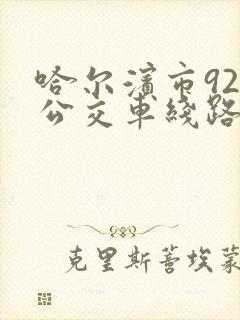 哈尔滨市92
公交车线路
克里斯蒂埃蒙